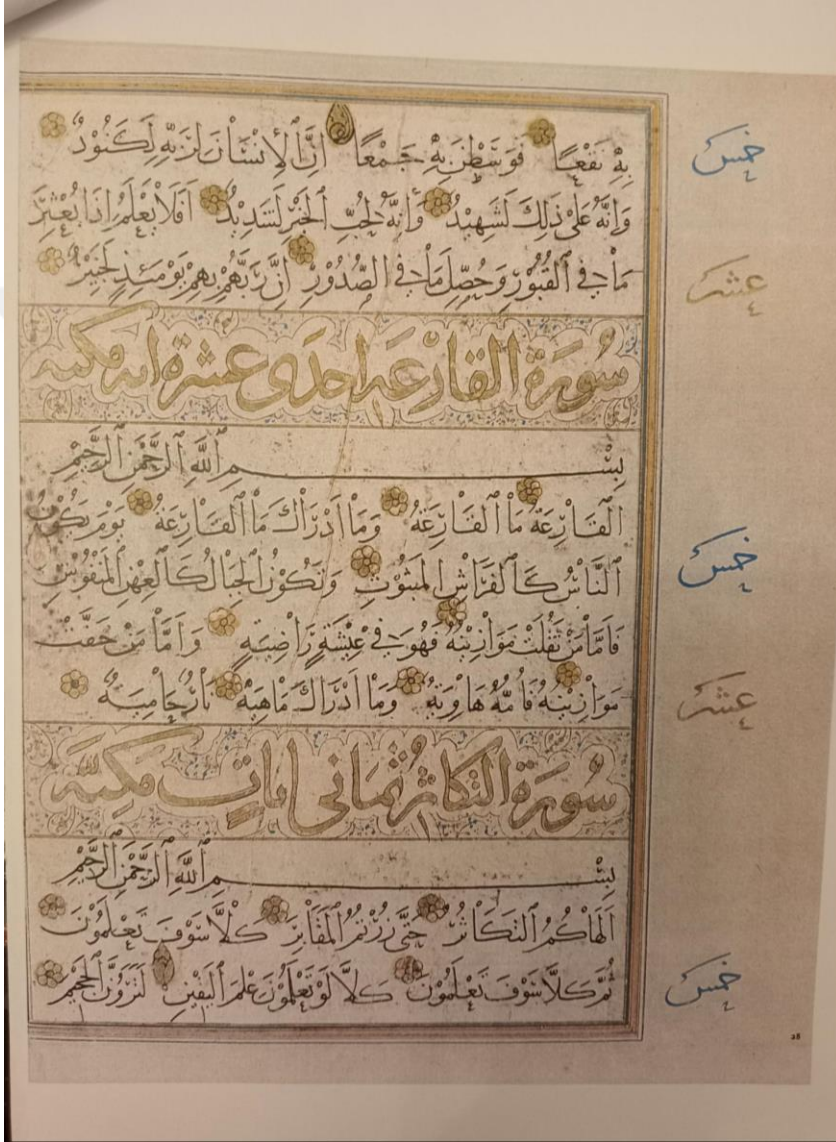 بِهِ نَقْعًا فَوَسَطْنَ بِهِ جَمْعًا إِنَّ الْإِنْسَانَ لِرَبِّهِ لَكَنُودٌ
خمس
وَإِنَّهُ عَلَىٰ ذَٰلِكَ لَشَهِيدٌ وَإِنَّهُ لِحُبِّ الْخَيْرِ لَشَدِيدٌ أَفَلَا يَعْلَمُ إِذَا بُعْثِرَ
مَا فِي الْقُبُورِ وَحُصِّلَ مَا فِي الصُّدُورِ إِنَّ رَبَّهُمْ بِهِمْ يَوْمَئِذٍ لَخَبِيرٌ
عشر
سُورَةُ الْقَارِعَة احدى عشرة اية مكية
بِسْمِ اللَّهِ الرَّحْمَٰنِ الرَّحِيمِ
الْقَارِعَةُ مَا الْقَارِعَةُ وَمَا أَدْرَاكَ مَا الْقَارِعَةُ يَوْمَ يَكُونُ
النَّاسُ كَالْفَرَاشِ الْمَبْثُوثِ وَتَكُونُ الْجِبَالُ كَالْعِهْنِ الْمَنْفُوشِ
خمس
فَأَمَّا مَنْ ثَقُلَتْ مَوَازِينُهُ فَهُوَ فِي عِيشَةٍ رَاضِيَةٍ وَأَمَّا مَنْ خَفَّتْ
مَوَازِينُهُ فَأُمُّهُ هَاوِيَةٌ وَمَا أَدْرَاكَ مَاهِيَهْ نَارٌ حَامِيَةٌ
عشر
سُورَةُ التَّكَاثُرِ ثَمَانِي ايات مكية
بِسْمِ اللَّهِ الرَّحْمَٰنِ الرَّحِيمِ
أَلْهَاكُمُ التَّكَاثُرُ حَتَّىٰ زُرْتُمُ الْمَقَابِرَ كَلَّا سَوْفَ تَعْلَمُونَ
ثُمَّ كَلَّا سَوْفَ تَعْلَمُونَ كَلَّا لَوْ تَعْلَمُونَ عِلْمَ الْيَقِينِ لَتَرَوُنَّ الْجَحِيمَ
خمس
28